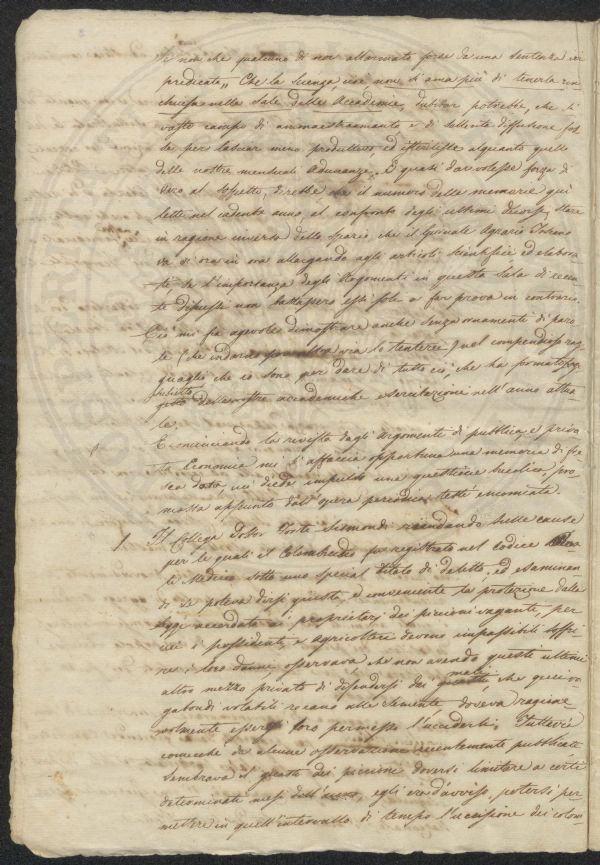 Se non che qualcuno di noi allarmato forse da una sentenza ivi
predicata,, Che la scienza, cioè non si ama più di tenerla rin-
chiusa nelle Sale delle Accademie, dubitar potrebbe, che il
vasto campo di ammaestramento e di sollecita diffusione fos-
se per lasciar meno produttivo, ed isterilisse alquanto quello
delle nostre mensuali Adunanze. E quasi dar volesse forza di
vero al sospetto, direbbe che il numero delle memorie qui
lette nel cadente anno al confronto degli ultimi decorsi, stare
in ragione inversa dello spazio, che il Giornale Agrario Toscano
va di ora in ora allargando agli articoli scientifici ed elabora-
ti. Se l'importanza degli Argomenti in questa Sala di recen-
te discussi non bastassero essi soli a far prova in contrario.
Ciò mi fia agevole dimostrare anche senza ornamenti di paro-
le (che indarno per altra via lo tenterei) nel compendioso rag-
guaglio che io sono per dare di tutto ciò, che ha formato
subietto delle nostre accademiche esercitazioni nell'anno attua-
le.
E cominciando la rivista dagli Argomenti di pubblica e priva-
ta Economia mi s'affaccia opportuna una memoria di fre-
sca data, cui diede impulso una questione bucolica, pro-
mossa appunto dall'opera periodica testè enunciata.
1. Il Collega Dottor Forte Sismondi ricercando sulle cause
per le quali il Colombicidio fu registrato nel Codice
le Mediceo sotto uno special titolo di delitto, ed esaminan-
do se poteva dirsi giusta, e conveniente la protezione dalle
leggi accordata ai proprietarj dei piccioni vagante, per
cui i possidenti e agricoltori devono impassibili soffrir-
ne i loro danni, osservava che non avendo questi ultimi
altro mezzo privato di difendersi dai mali, che quei va-
gabondi volatili recano alle semente doveva ragione-
volmente essersi loro permesso l'ucciderli. Tuttavia
comecchè da alcune osservazioni recentemente pubblicate
sembrava il guasto dei piccioni doversi limitare a certi
determinati mesi dell'anno, egli era d'avviso, potersi per-
mettere in quell'intervallo di tempo l'uccisione dei colom-